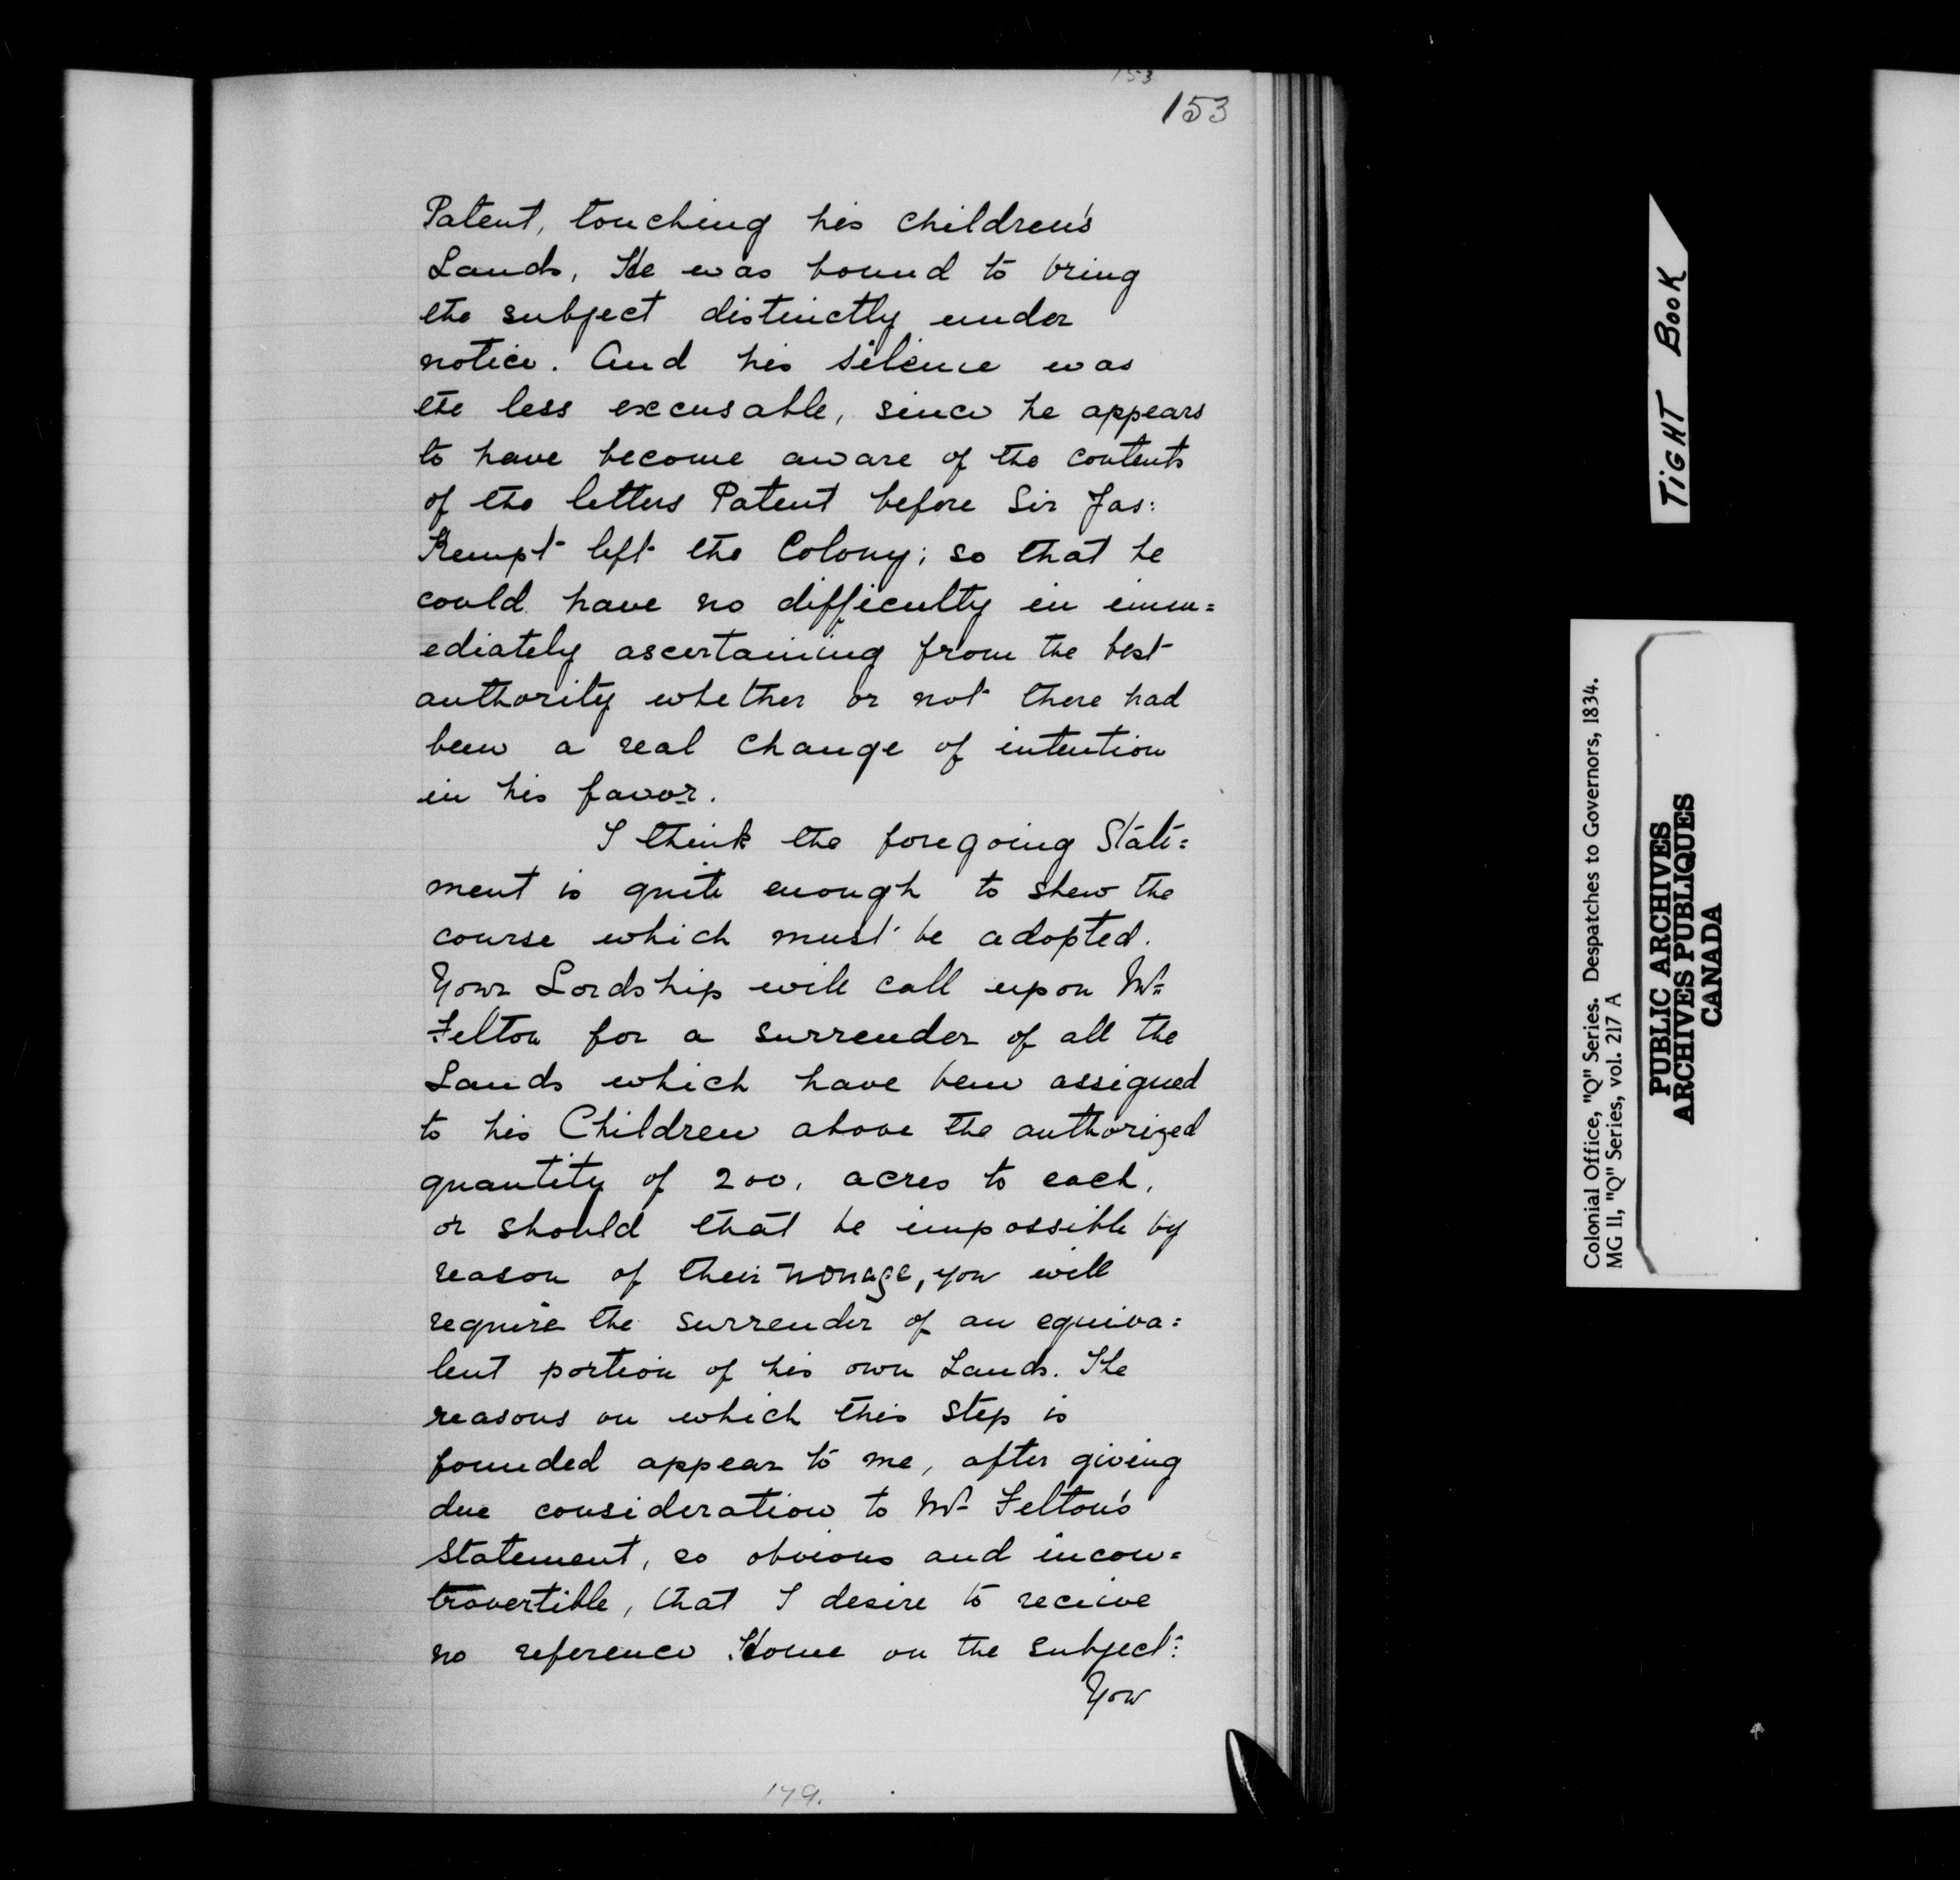 153
153
Patent, touching his children's
Lands, He was bound to bring
the subject distinctly under
notice. And his silence was
the less excusable, since he appears
to have become aware of the contents
of the letters Patent before Sir Jas:
Kempt left the Colony; so that he
could have no difficulty in imm=
ediately ascertaining from the best
authority whether or not there had
been a real change of intention
in his favor.
I think the foregoing State=
ment is quite enough to shew the
course which must be adopted.
Your Lordship will call upon Mr
Felton for a surrender of all the
Lands which have been assigned
to his Children above the authorized
quantity of 200. acres to each,
or should that be impossible by
reason of their nonage, you will
require the surrender of an equiva=
lent portion of his own Lands. The
reasons on which this step is
founded appear to me, after giving
due consideration to Mr Felton's
statement, so obvious and incon=
trovertible, that I desire to receive
no reference Home on the subject:
You
179.
TIGHT BOOK
Colonial Office, "Q" Series. Despatches to Governors, 1834.
MG 11, "Q" Series, vol. 217 A
PUBLIC ARCHIVES
ARCHIVES PUBLIQUES
CANADA